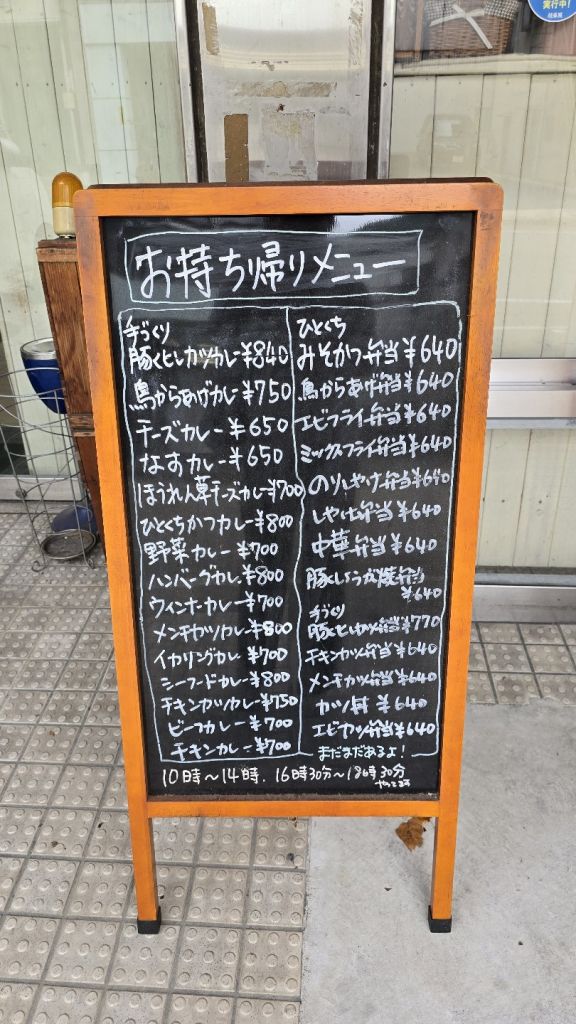 実行中!
お持ち帰りメニュー
手づくり
豚ヒレカツカレー¥840
鳥からあげカレー¥750
チーズカレー¥650
なすカレー¥650
ほうれん草チーズカレー¥700
ひとくちかつカレー¥800
野菜カレー¥700
ハンバーグカレー¥800
ウィンナーカレー¥700
メンチカツカレー¥800
イカリングカレー¥700
シーフードカレー¥800
チキンカツカレー¥750
ビーフカレー¥700
チキンカレー¥700
ひとくち
みそかつ弁当¥640
鳥からあげ弁当¥640
エビフライ弁当¥640
ミックスフライ弁当¥640
のりしゃけ弁当¥640
しゃけ弁当¥640
中華弁当¥640
豚しょうが焼弁当
¥640
手づくり
豚ヒレカツ弁当¥770
チキンカツ弁当¥640
メンチカツ弁当¥640
カツ丼 ¥640
エビカツ弁当¥640
まだまだあるよ!
10時〜14時. 16時30分〜18時30分
やってます